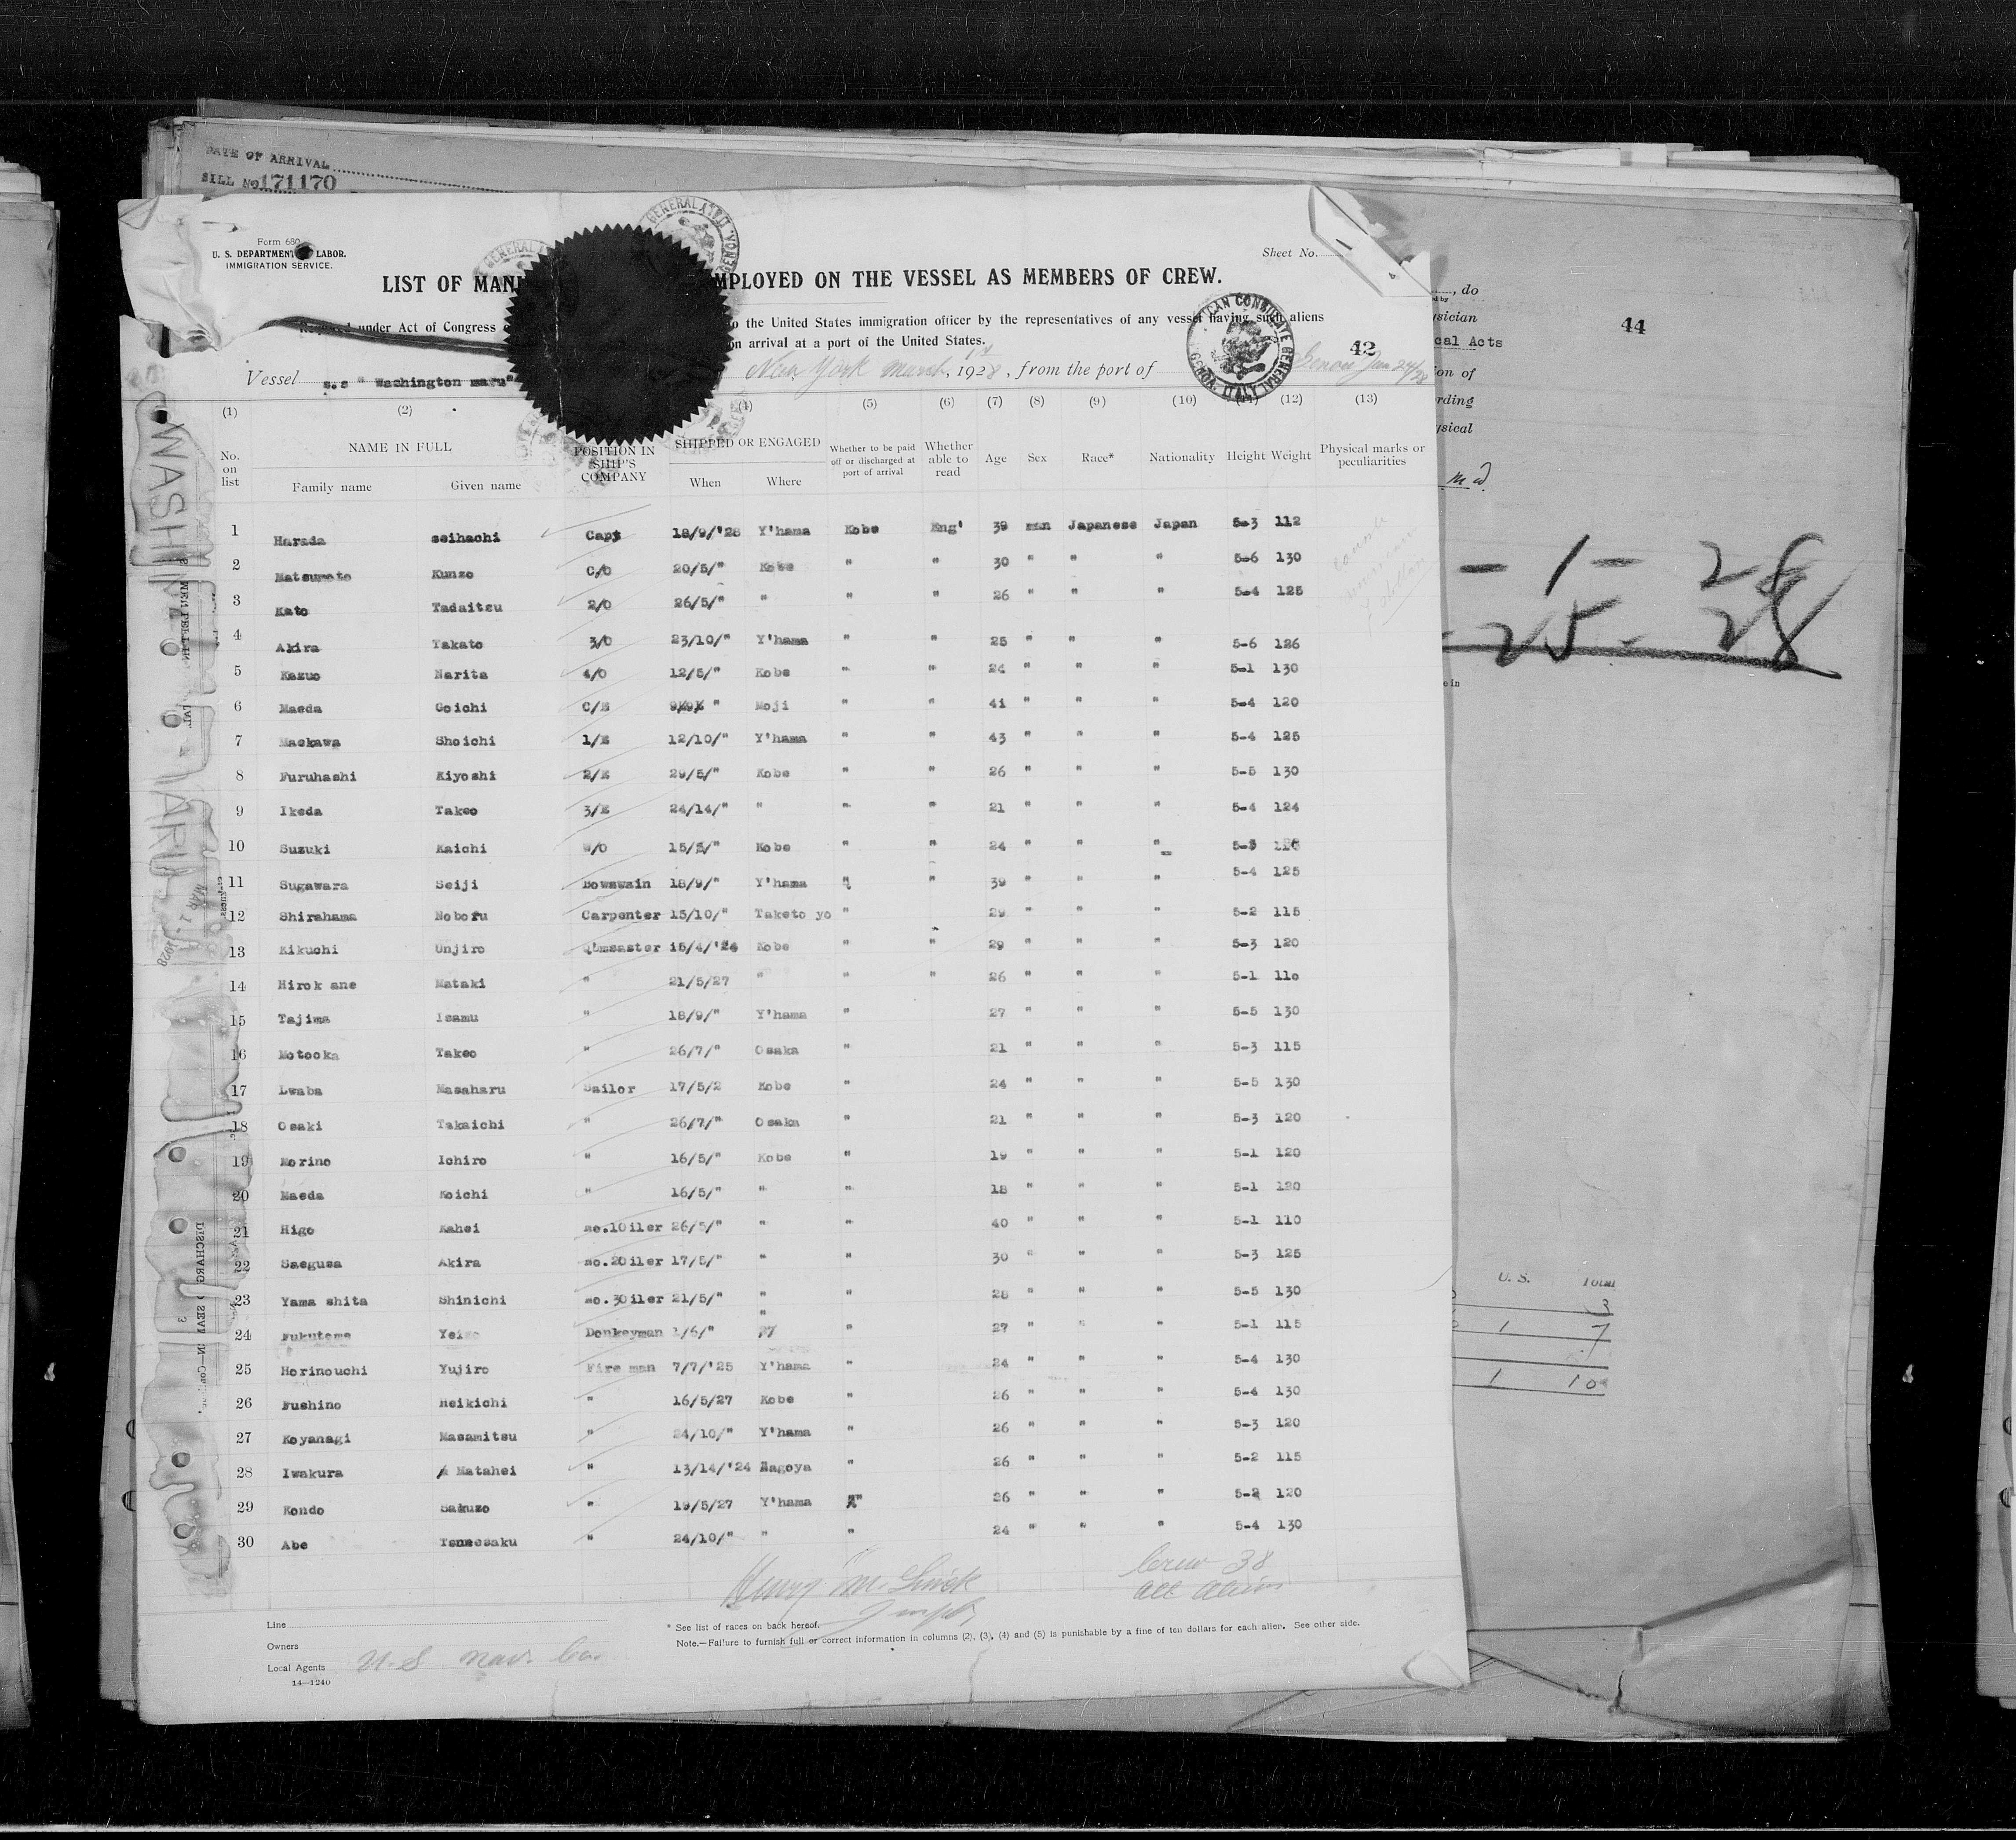 DATE OF ARRIVAL
BILL No 171170
Form 680
U. S. DEPARTMENT LABOR.
IMMIGRATION SERVICE.
Sheet No.
LIST OF MAN MPLOYED ON THE VESSEL AS MEMBERS OF CREW.
under Act of Congress o the United States immigration officer by the representatives of any vessel having such aliens
on arrival at a port of the United States.
42
Vessel s.s " Washington maru" New York March 1st, 1928, from the port of Genoa Jan 24/28
(1) (2) (4) (5) (6) (7) (8) (9) (10) (11) (12) (13)
No. on list NAME IN FULL Family name Given name POSITION IN SHIP'S COMPANY SHIPPED OR ENGAGED When Where Whether to be paid off or discharged at port of arrival Whether able to read Age Sex Race* Nationality Height Weight Physical marks or peculiarities
1 Harada seihachi Capt 18/9/'28 Y'hama Kobe Eng' 39 man Japanese Japan 5-3 112
2 Matsumoto Kunzo C/O 20/5/" Kobe " " 30 " " " 5-6 130
3 Kato Tadaitsu 2/O 26/5/" " " " 26 " " " 5-4 125
4 Akira Takato 3/O 23/10/" Y'hama " " 25 " " " 5-6 126
5 Kazuo Narita 4/O 12/5/" Kobe " " 24 " " " 5-1 130
6 Maeda Goichi C/E " Moji " " 41 " " " 5-4 120
7 Maekawa Shoichi 1/E 12/10/" Y'hama " " 43 " " " 5-4 125
8 Furuhashi Kiyoshi 2/E 29/5/" Kobe " " 26 " " " 5-5 130
9 Ikeda Takeo 3/E 24/14/" " " " 21 " " " 5-4 124
10 Suzuki Kaichi W/O 15/5/" Kobe " " 24 " " " 5-3
11 Sugawara Seiji Bowswain 18/9/" Y'hama " " 39 " " " 5-4 125
12 Shirahama Noboru Carpenter 15/10/" Taketo yo " 29 " " " 5-2 115
13 Kikuchi Unjiro Q'msaster 15/4/'24 Kobe " " 29 " " " 5-3 120
14 Hirok ane Mataki " 21/5/27 " " " 26 " " " 5-1 110
15 Tajima Isamu " 18/9/" Y'hama " 27 " " " 5-5 130
16 Motooka Takeo " 26/7/" Osaka " 21 " " " 5-3 115
17 Lwaba Masaharu Sailor 17/5/2 Kobe " 24 " " " 5-5 130
18 Osaki Takaichi " 26/7/" Osaka " 21 " " " 5-3 120
19 Morino Ichiro " 16/5/" Kobe " 19 " " " 5-1 120
20 Maeda Koichi " 16/5/" " " 18 " " " 5-1 120
21 Higo Kahei no.1Oiler 26/5/" " " 40 " " " 5-1 110
22 Saegusa Akira no.2Oiler 17/5/" " " 30 " " " 5-3 125
23 Yama shita Shinichi no.3Oiler 21/5/" " " 28 " " " 5-5 130
24 Fukutome Donkeyman 1/6/" " " 27 " " " 5-1 115
25 Horinouchi Yujiro Fire man 7/7/'25 Y'hama " 24 " " " 5-4 130
26 Fushino Heikichi " 16/5/27 Kobe " 26 " " " 5-4 130
27 Koyanagi Masamitsu " 24/10/" Y'hama " 26 " " " 5-3 120
28 Iwakura Matahei " 13/14/'24 Nagoya " 26 " " " 5-2 115
29 Kondo Sakuzo " 19/5/27 Y'hama " 36 " " " 5-2 120
30 Abe Tsunesaku " 24/10/" " " 24 " " " 5-4 130
Crew 38
all aliens
Line
Owners
Local Agents U.S nav. Co.
14—1240
* See list of races on back hereof.
Note.—Failure to furnish full or correct information in columns (2), (3), (4) and (5) is punishable by a fine of ten dollars for each alien. See other side.
44
, do
ysician
cal Acts
ion of
rding
ysical
M D.
- 1 - 28
- 25 - 28
U. S. Total
3
1 7
1 10